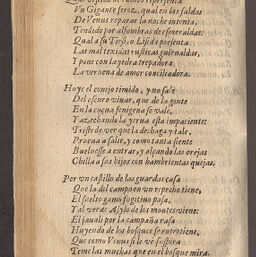 Vn Gigante feroz, qual en las faldas
De Venus reparar la noche intenta,
Tendido por alfombras de esmeraldas:
Qual a su Tirso, o Lisi de presenta
Las mal texidas rusticas guirnaldas,
I pone con la yedra trepadora
La veruena de amor conciliadora.
Huye el conejo timido, y no sale
Del escuro viuar, que de la gente
En la cueua
Y azechando la yerua esta impaciente:
Triste de ver que la deshaga y tale,
Procura a salir, y como tanta siente
Bueluese a entrar, y alçando las orejas
Chilla a sus hijos con hambrientas quejas.
Por vn castillo de las guardas casa
Que la del campo en vn repecho tiene,
El suelto gamo fugitiuo passa,
I al verde Asylo de los montes viene:
El jauali por la campaña rasa
Huyendo de los bosques se entretiene,
Que como Venus si le ve suspira
Teme las muchas que en el bosque mira.